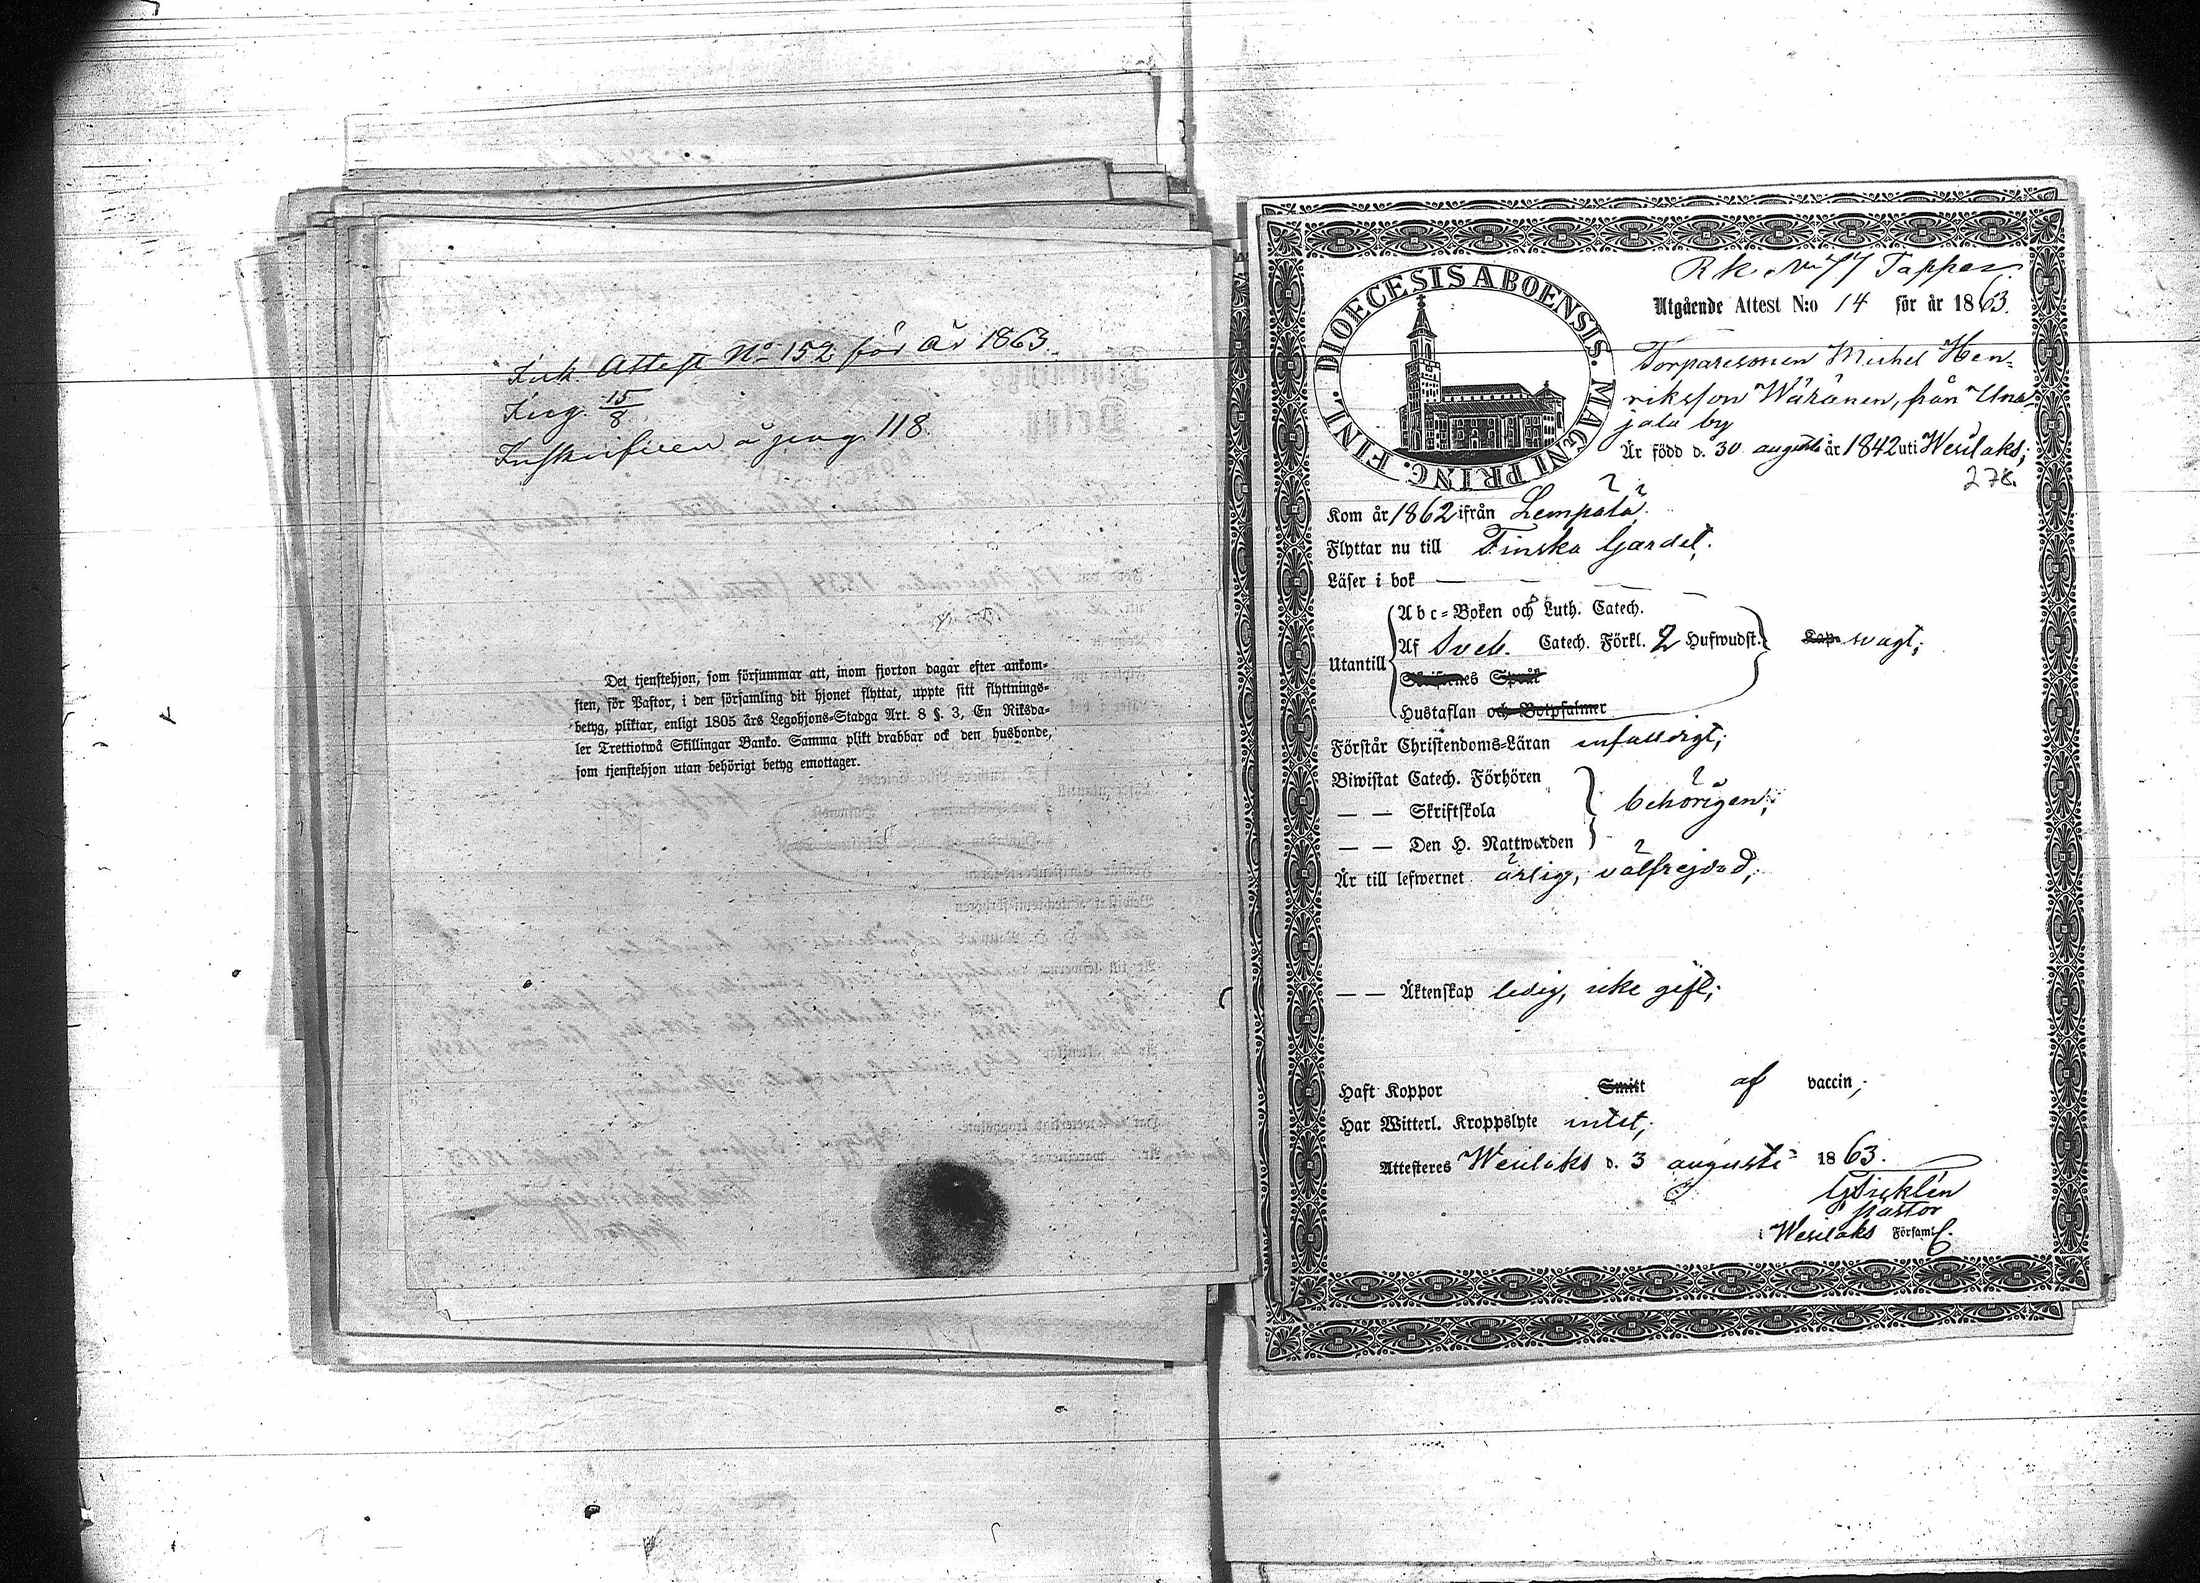 Ink. Attest No 152 för år 1863.
Inskrifven å pag. 118.
Det tjenstehjon, som försummar att, inom fjorton dagar efter ankom-
sten, för Pastor, i den församling dit hjonet flyttat, uppte sitt flyttnings-
betyg, pliktar, enligt 1805 års Legohjons-Stadga Art. 8 §. 3, En Riksda-
ler Trettiotwå Skillingar Banko. Samma plikt drabbar ock den husbonde,
som tjenstehjon utan behörigt betyg emottager.
DIOECESIS ABOENSIS. MAGNI PRINC. FINL.
Rk No 77 Tapper.
Utgående Attest N:o 14 för år 1863.
Torparesonen Michel Hen-
riksson Wäränen, från
jala by
Är född d. 30 augusti år 1842 uti Wesilaks;
278.
Kom år 1862 ifrån Lempälä
Flyttar nu till Finska Gardet.
Läser i bok —
Utantill
Abc-Boken och Luth. Catech.
Af Sveb. Catech. Förkl. 2 Hufwudst. svagt;
Skriftenes Språk
Hustaflan och Botpsalmer
Förstår Christendoms-Läran enfaldigt;
Biwistat Catech. Förhören
— — Skriftskola behörigen;
— — Den H. Nattwarden
Är till lefwernet ärlig, välfrejdad;
— — Äktenskap ledig, icke gift;
Haft Koppor Smitt af vaccin;
Har Witterl. Kroppslyte intet;
Attesteres Wesilaks d. 3 augusti 1863.
Pastor
i Wesilaks Församl.